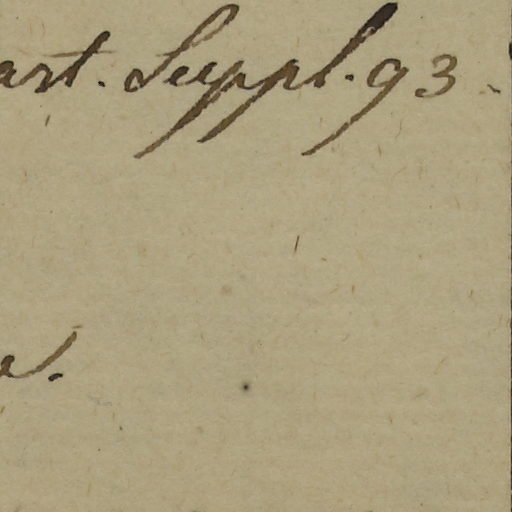 art. Suppl. 93.